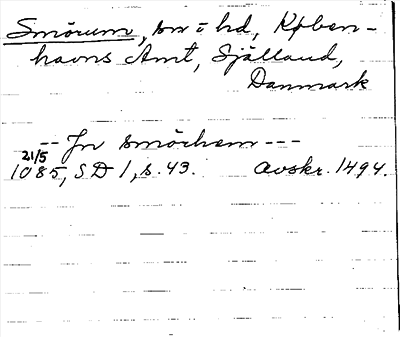 Smörum, sn o hd, Køben-
havns Amt, Själland,
Danmark
-- Jn smörhem ---
21/5
1085, SD 1, s. 43. avskr. 1494.